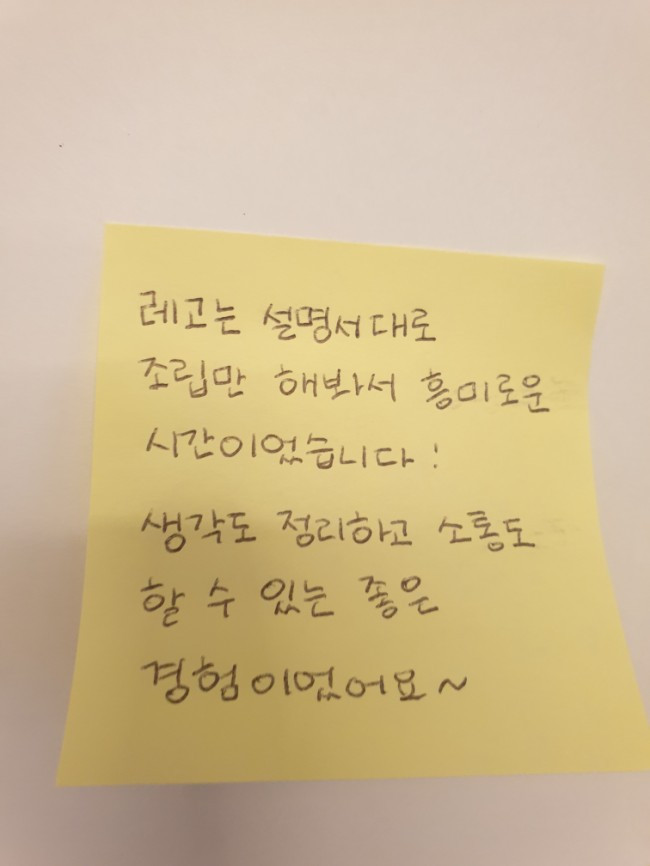 레고는 설명서대로
조립만 해봐서 흥미로운
시간이었습니다!
생각도 정리하고 소통도
할 수 있는 좋은
경험이었어요~